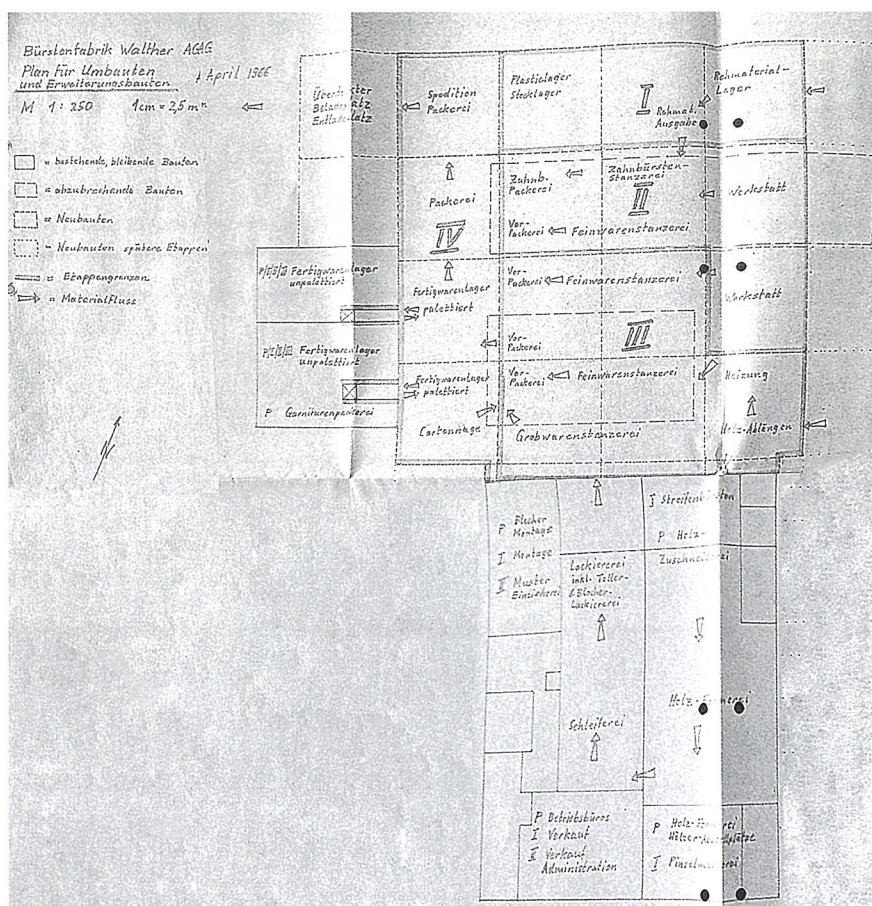 Bürstenfabrik Walther AG
Plan für Umbauten
und Erweiterungsbauten
April 1966
M 1:250 1cm = 2,5 m
= bestehende, bleibende Bauten
= abzubrechende Bauten
= Neubauten
= Neubauten spätere Etappen
= Etappengrenzen
= Materialfluss
Entladeplatz
Spedition
Packerei
Plasticlager
Stocklager
I
Rohmat.
Ausgabe
Rohmaterial-
Lager
Packerei
IV
Zahnb.
Packerei
Zahnbürsten-
stanzerei
II
Vor-
Packerei
Feinwarenstanzerei
Werkstatt
P/I/II/III Fertigwarenlager
unpalettiert
Fertigwarenlager
palettiert
Vor-
Packerei
Feinwarenstanzerei
Werkstatt
P/I/II/III Fertigwarenlager
unpalettiert
Vor-
Packerei
III
Fertigwarenlager
palettiert
Vor-
Packerei
Feinwarenstanzerei
Heizung
P Garniturenpackerei
Cartonnage
Grobwarenstanzerei
Holz-Ablängen
P Blocher
Montage
I Montage
II Muster
Einzieherei
Lackiererei
inkl. Teller-
& Blocher-
Lackiererei
I Streifenbürsten
P Holz-
Zuschneiderei
Schleiferei
Holz-Formerei
P Betriebsbüros
I Verkauf
II Verkauf
Administration
P Holz-Formerei
I Pinselmacherei